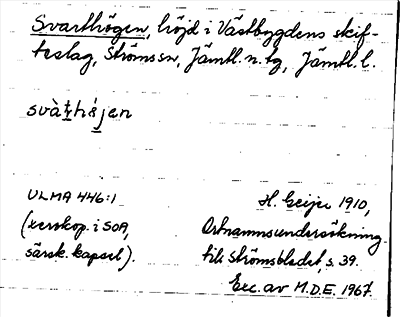 Svarthögen, höjd i Västbygdens skif-
teslag, Ströms sn, Jämtl. n. tg, Jämtl. l.
svàt̲hájen
ULMA 446:1
(xerokop. i SOA,
särsk. kapsel).
H. Geijer 1910,
Ortnamnsundersökning
till Strömsbladet, s. 39.
Exc. av M.D.E. 1967